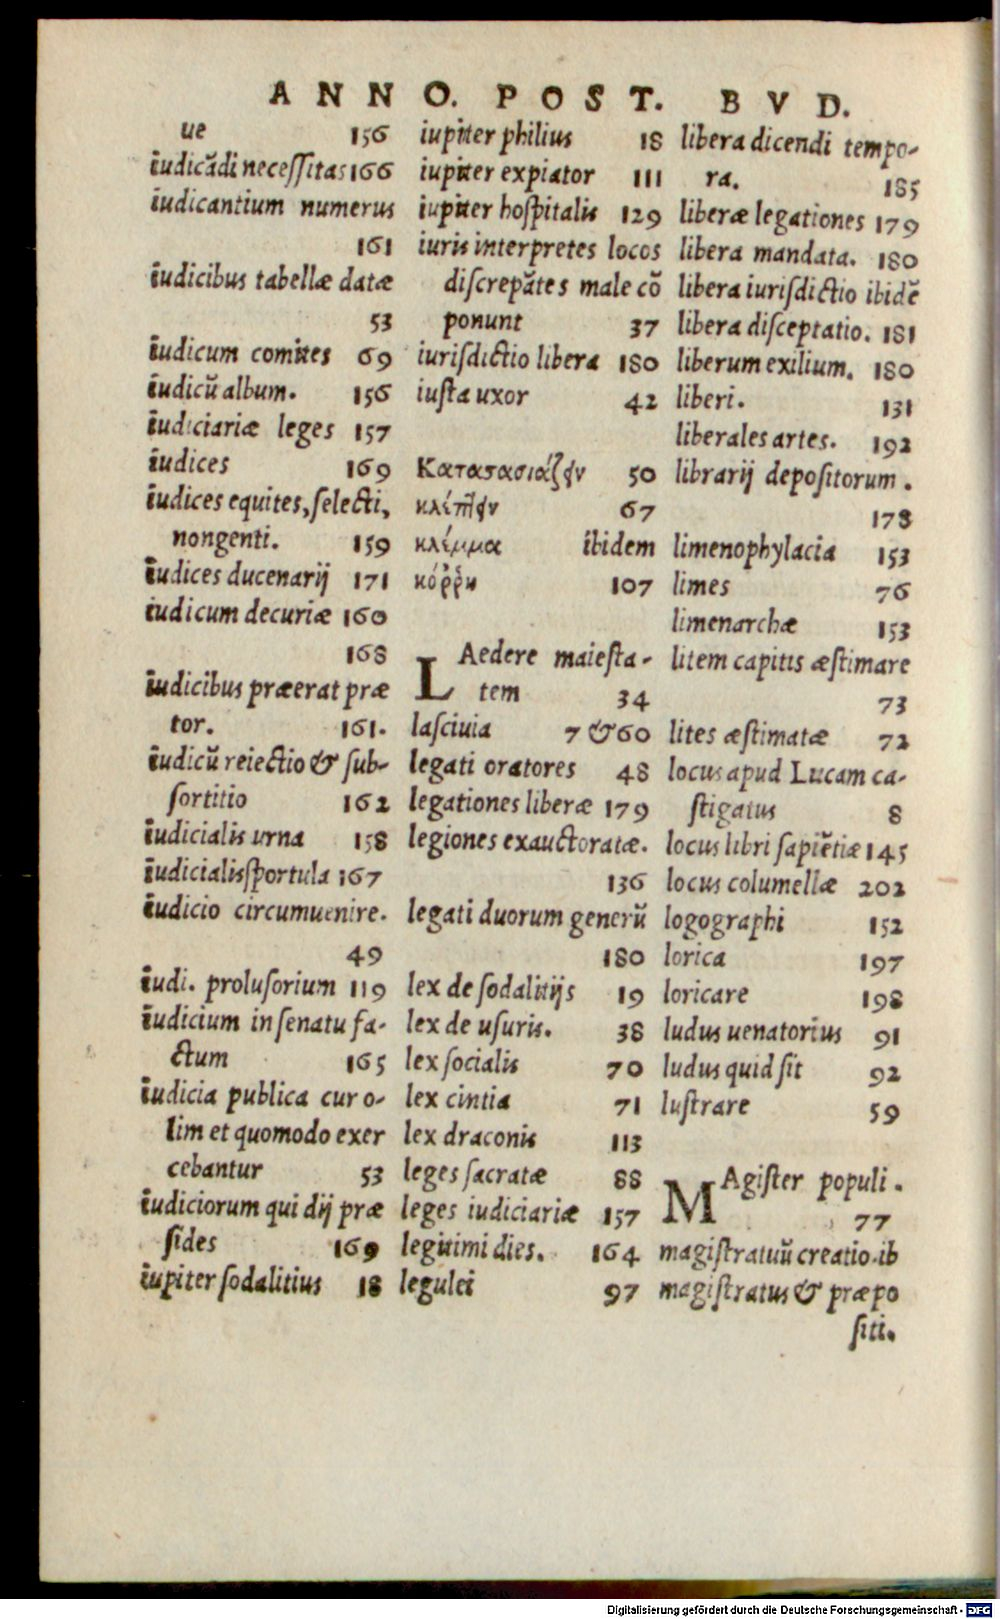 ANNO. POST. BVD.
ue 156
iudicãdi neceſſitas 166
iudicantium numerus
161
iudicibus tabellæ datæ
53
iudicum comites 69
iudicũ album. 156
iudiciariæ leges 157
iudices 169
iudices equites, ſelecti,
nongenti. 159
iudices ducenarij 171
iudicum decuriæ 160
168
iudicibus præerat præ
tor. 161.
iudicũ reiectio & ſub-
ſortitio 162
iudicialis urna 158
iudicialis ſportula 167
iudicio circumuenire.
49
iudi. proluſorium 119
iudicium in ſenatu fa-
ctum 165
iudicia publica cur o-
lim et quomodo exer
cebantur 53
iudiciorum qui dij præ
ſides 169
iupiter ſodalitius 18
iupiter philius 18
iupiter expiator 111
iupiter hoſpitalis 129
iuris interpretes locos
diſcrepãtes male cõ
ponunt 37
iuriſdictio libera 180
iuſta uxor 42
Κατασασιάζειν 50
κλέπτειν 67
κλέμμα ibidem
κόῤῥη 107
LAedere maieſta-
tem 34
laſciuia 7 & 60
legati oratores 48
legationes liberæ 179
legiones exauctoratæ.
136
legati duorum generũ
180
lex de ſodalitijs 19
lex de uſuris. 38
lex ſocialis 70
lex cintia 71
lex draconis 113
leges ſacratæ 88
leges iudiciariæ 157
legitimi dies. 164
legulei 97
libera dicendi tempo-
ra. 185
liberæ legationes 179
libera mandata. 180
libera iuriſdictio ibidẽ
libera diſceptatio. 181
liberum exilium. 180
liberi. 131
liberales artes. 192
librarij depoſitorum.
178
limenophylacia 153
limes 76
limenarchæ 153
litem capitis æſtimare
73
lites æſtimatæ 72
locus apud Lucam ca-
ſtigatus 8
locus libri ſapiẽtiæ 145
locus columellæ 202
logographi 152
lorica 197
loricare 198
ludus uenatorius 91
ludus quid ſit 92
luſtrare 59
MAgiſter populi.
77
magiſtratuũ creatio.ib
magiſtratus & præpo
ſiti.
Digitalisierung gefördert durch die Deutsche Forschungsgemeinschaft - DFG